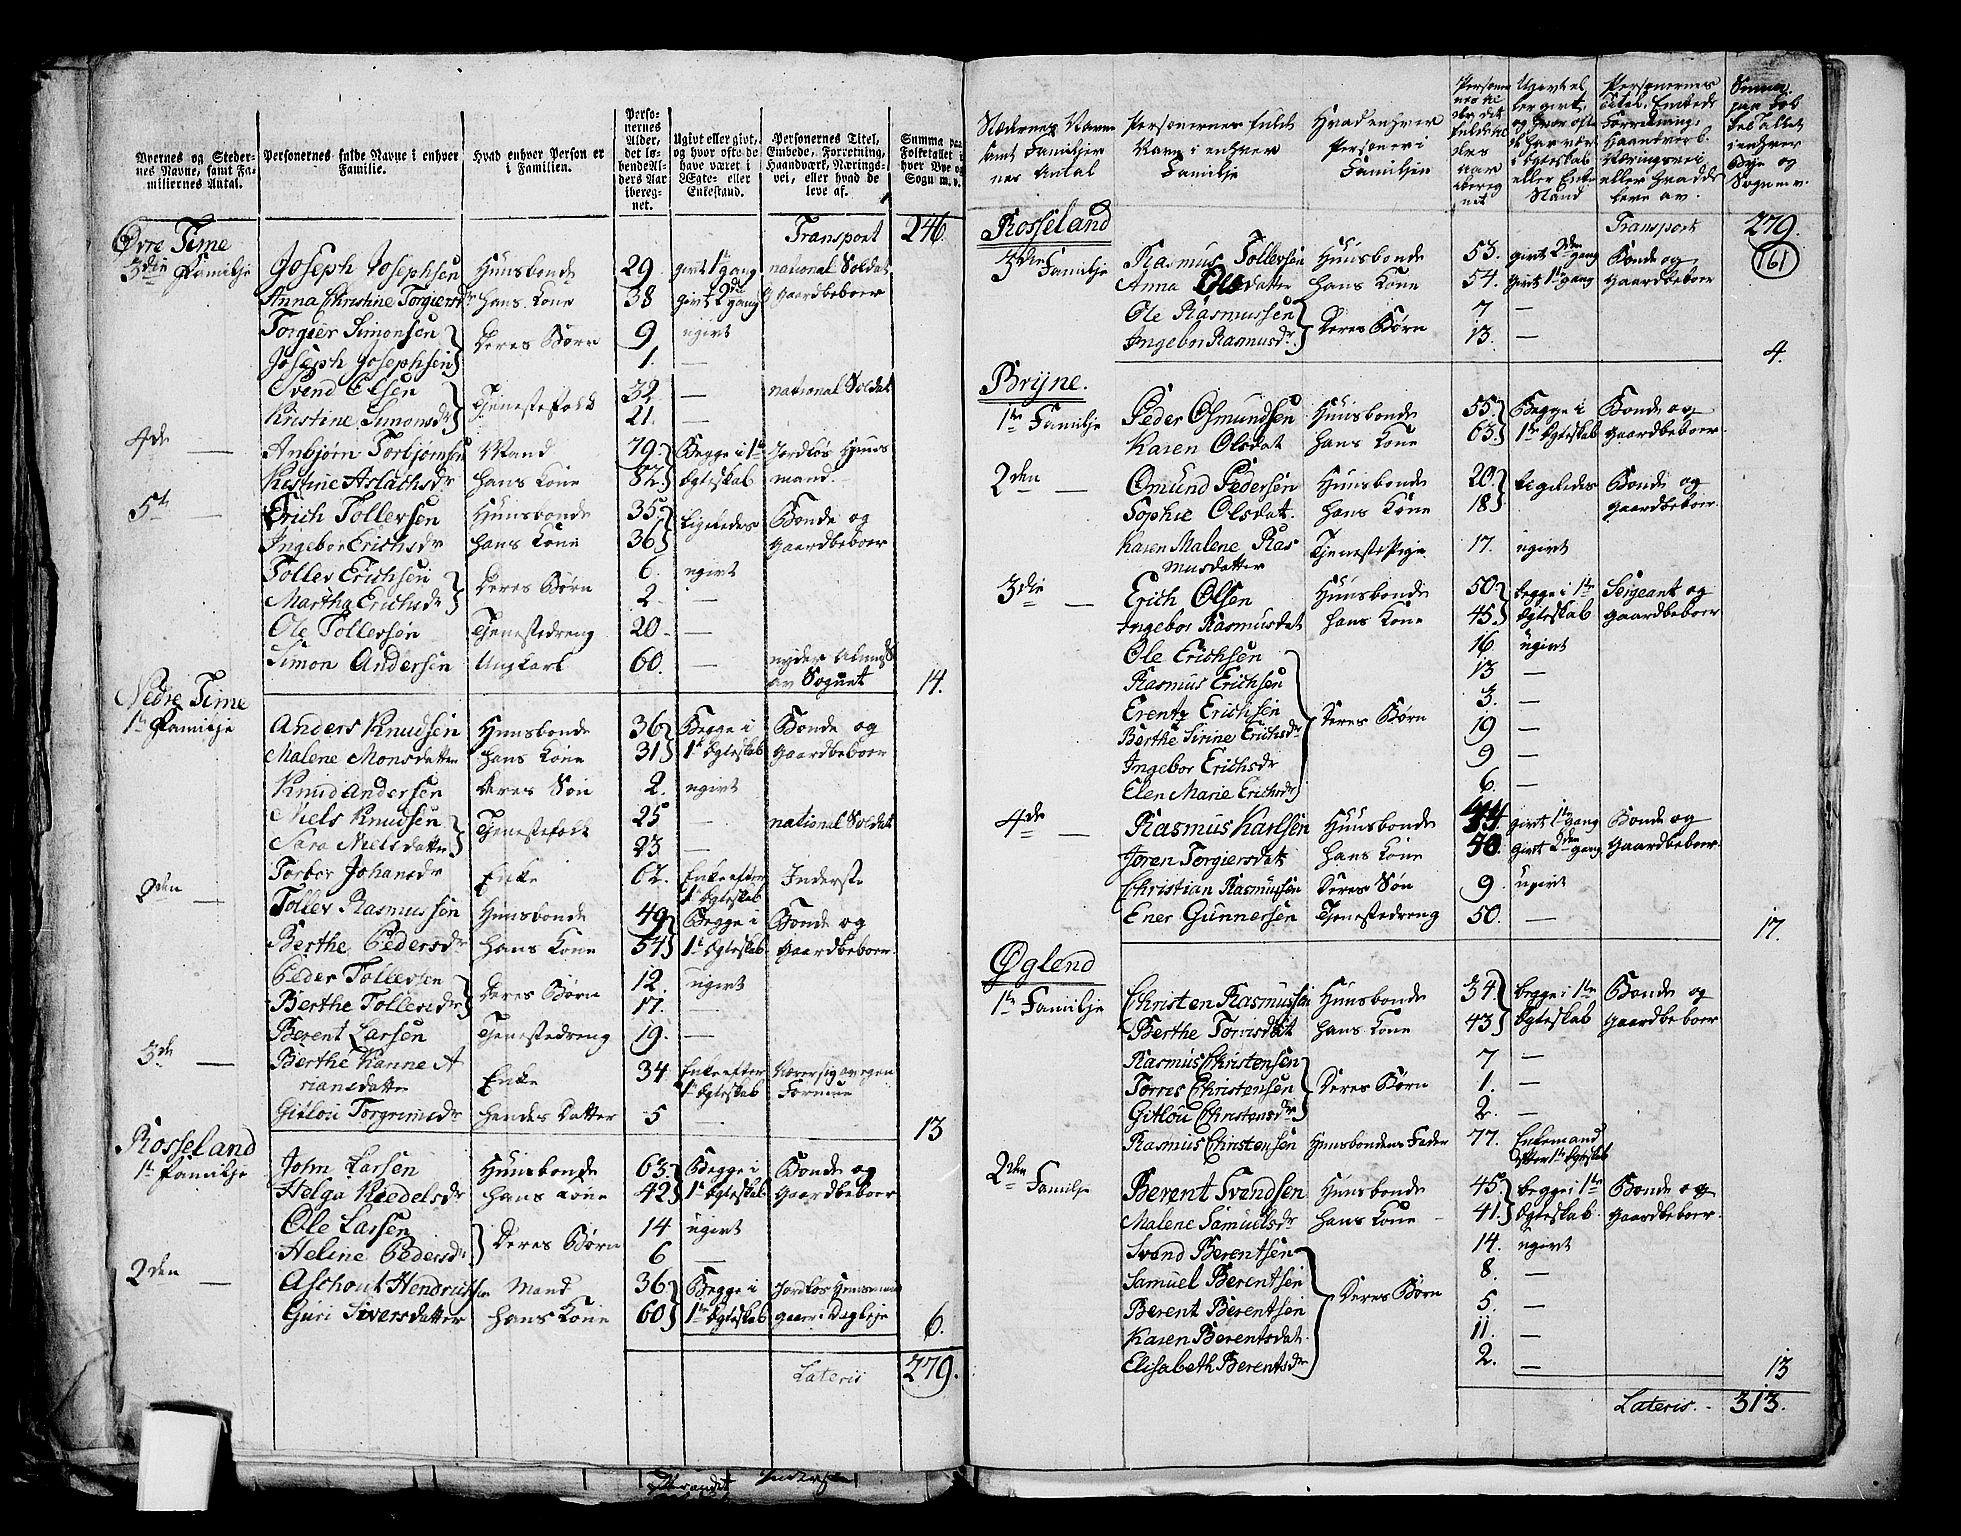 Byernes og Stedernes Navne, samt Familiernes Antal. | Personernes fulde Navne i enhver Familie. | Hvad enhver Person er i Familien. | Personernes Alder, det løbende Alders Aar iberegnet. | Ugivt eller givt, og hvor ofte de have været i Ægte- eller Enkestand. | Personernes Titel, Embede, Forretning, Haandværk, Næringsvei, eller hvad de leve af. | Summa paa Folketallet i hver Bye og Sogn m. v.
Transport 246.
Øvre Time
3die Familje Joseph Josephsen Huusbonde 29. givt 1ste gang national Soldat
Anna Christine Torgiersdr hans Kone 38 givt 2den gang og gaardbeboer
Torgier Simonsen Deres Børn 9 ugivt
Joseph Josephsen 1. —
Svend Elsen Tjenestefolk 32. — national Soldat
Kristine Simonsdr 21. —
4de — Anbjørn Torbjørnsen Mand 79. Begge i 1te Jordløs Huus
Kistine Aslachsdr hans Kone 82. Egteskab mand.
5te — Erich Tollevsen Huusbonde 35 Ligeledes Bonde og
Ingebor Erichsdr hans Kone 36 gaardbeboer
Tollev Erichsen Deres Børn 6. ugivt
Martha Erichsdr 2. —
Ole Tollevsen Tjenestedreng 20. —
Simon Andersen Ungkarl 60. — nyder Almisse
av Sognet 14.
Nedre Time
1te Familje Anders Knudsen Huusbonde 36 Begge i Bonde og
Malene Monsdatter hans Kone 31 1te Egteskab gaardbeboer
Knud Andersen Deres Søn 2. ugivt
Niels Knudsen Tjenestefolk 25 — national Soldat
Sara Nielsdatter 23 —
Torbor Johansdr Enke 62. Enke efter Inderste
1te Egteskab
2den — Tollev Rasmussen Huusbonde 49 Begge i Bonde og
Berthe Pedersdr hans Kone 54 1te Egteskab gaardbeboer.
Peder Tollevsen Deres Børn 12. ugivt
Berthe Tollevsdr 17. —
Berent Larsen Tjenestedreng 19. —
3de — Berthe Hanne A Enke 34 Enke efter Nærer sig av egen
riansdatter 1te Egteskab Formue
Gitlou Torgrimsdr hendes Datter 5 — 13
Rosseland
1te Familje John Larsen Huusbonde 63. Begge i Bonde og
Helga Kiedelsdr hans Kone 42 1te Egteskab gaardbeboer
Ole Larsen Deres Børn 14 ugivt
Helene Pedersdr 6 —
2den — Aschout Hendrichsen Mand 36 Begge i Jordløs Huusmand
Guri Siversdatter hans Kone 60 1te Egteskab gaaer i Dagleje 6.
Lateris 279.
Stedernes Navne samt Familjernes Antal | Personernes fulde Navn i enhver Familje | Hvad enhver Person er i Familjen | Personernes Alder det fuldende Alders Aar iberegnet | Ugivt eller givt, og hvor ofte de har været i Egteskab eller Enke Stand | Personernes Titel, Embede Forretning, Haandverk, Næringsvei eller hvad de leve av. | Summa paa Folketallet i enhver Bye og Sogn m. v.
Transport 279.
161
Rosseland
3die Familje Rasmus Tollevsen Huusbonde 53. givt 2den gang Bonde og
Anna Olsdatter hans Kone 54. givt 1te gang gaardbeboer
Ole Rasmussen Deres Børn 7 —
Ingebor Rasmusdr 13. —
4.
Bryne.
1te Familje Peder Osmundsen Huusbonde 55. Begge i Bonde og
Karen Olsdat hans Kone 63. 1te Egteskab gaardbeboer.
2den — Omund Pedersen Huusbonde 20. Ligeledes Bonde og
Sophie Olsdat. hans Kone 18 gaardbeboer.
Karen Malene Ras Tjenestepige 17. ugivt
musdatter
3die — Erich Olsen Huusbonde 50. begge i 1te Sergeant og
Ingebor Rasmusdat hans Kone 45. Egteskab gaardbeboer
Ole Erichsen 16 ugivt
Rasmus Erichsen 13 —
Erentz Erichsen Deres Børn 3. —
Berthe Sirine Erichsdr 19 —
Ingebor Erichsdr 9 —
Elen Marie Erichsdr 6. —
4de — Rasmus Karlsen Huusbonde 44 givt 1te gang Bonde og
Joren Torgiersdat hans Kone 50. givt 2den gang gaardbeboer
Christian Rasmussen Deres Søn 9. ugivt
Ener Gunnersen Tjenestedreng 50. — 17.
Øglend
1te Familje Christen Rasmussen Huusbonde 34. begge i 1te Bonde og
Berthe Tomsdat hans Kone 43 Egteskab gaardbeboer
Rasmus Christensen 7 —
Torres Christensen Deres Børn 1. —
Gitlou Christensdr 2. —
Rasmus Christensen Huusbondens Fader 77. Enkemand
efter 1te Egteskab
2den Familje Berent Svendsen Huusbonde 45. begge i 1te Bonde og
Malene Samuelsdr hans Kone 41. Egteskab. gaardbeboer.
Svend Berentsen 14. ugivt
Samuel Berentsen Deres Børn 8. —
Berent Berentsen 5. —
Karen Berentsdat. 11. —
Elisabeth Berentsdr 2. — 13
Lateris. 313.